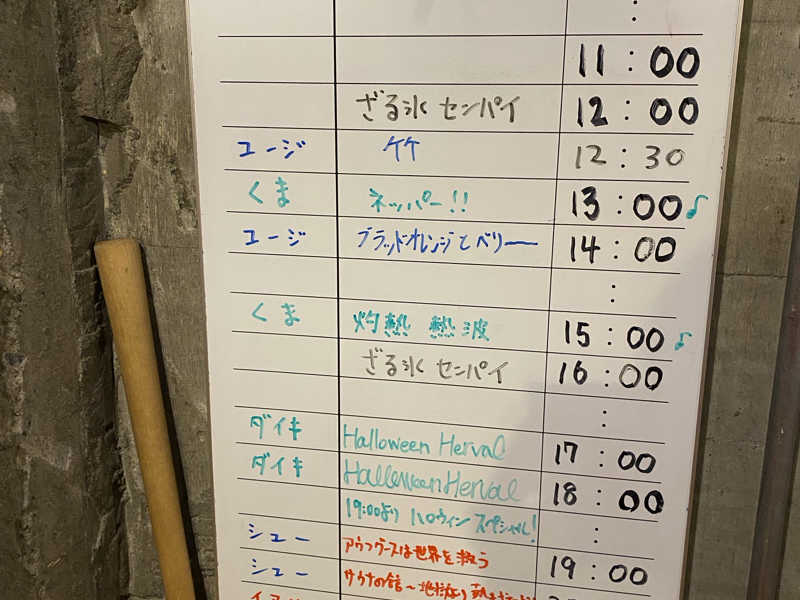 :
11:00
ざる氷 センパイ 12:00
ユージ 竹 12:30
くま ネッパー!! 13:00♪
ユージ ブラッドオレンジとベリー 14:00
:
くま 灼熱 熱波 15:00♪
ざる氷 センパイ 16:00
:
ダイキ Halloween Herval 17:00
ダイキ Halloween Herval 18:00
19:00より ハロウィン スペシャル! :
シュー アウフグースは世界を救う 19:00
シュー サウナの